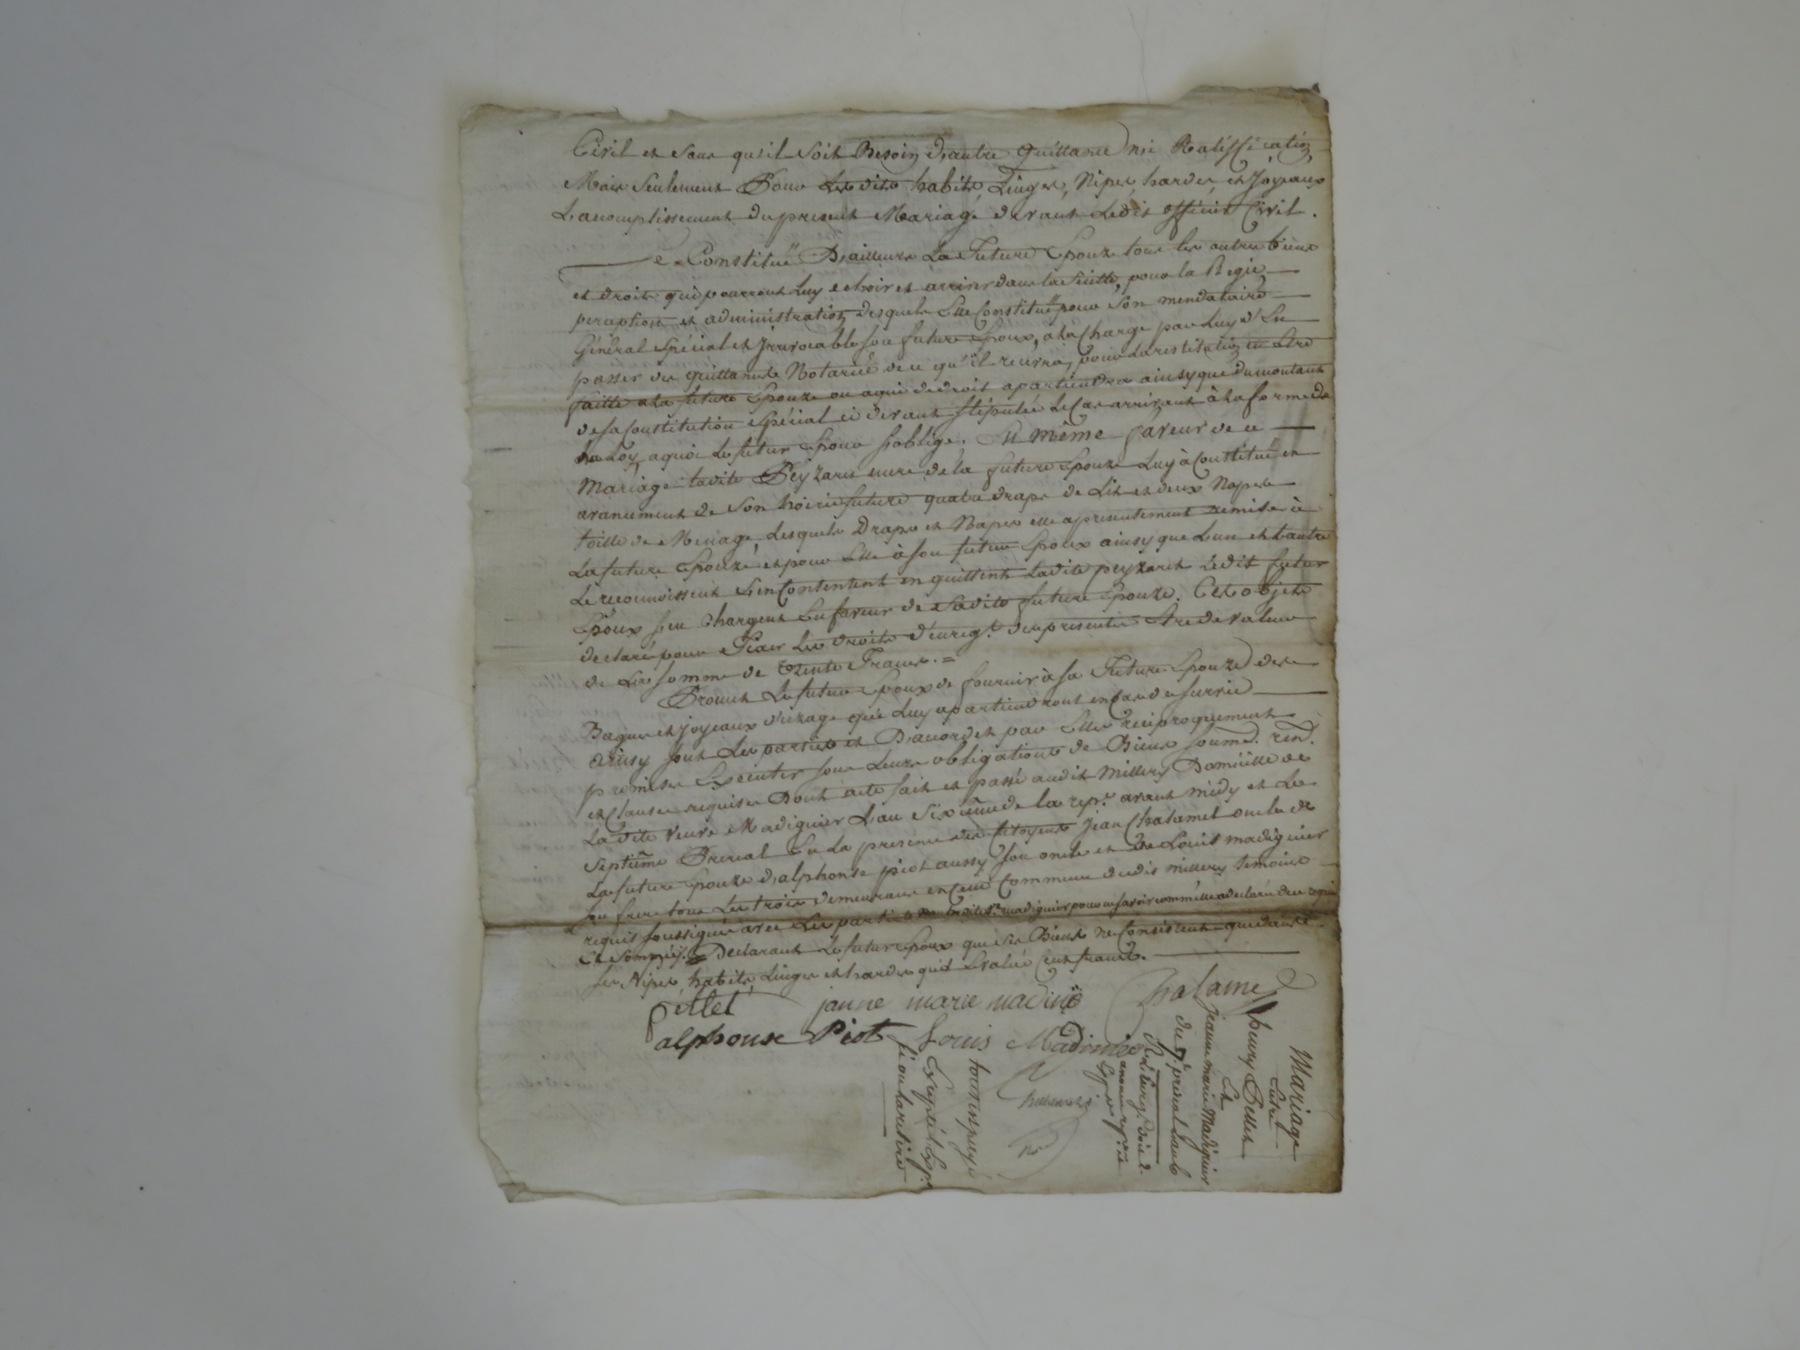 Civil et sans qu'il soit Besoin d'autre quittance ni Ratiffication
Mais seulement Pour lesdits habits, Linges, Nipes, hardes, et Joyeaux
L'acomplissement du present Mariage devant Ledit officier Civil.
Se Constitue D'ailleurs La Future Epouze tous les autres biens
et droits qui pourront Luy echoir et arriver dans la suitte, pour la Regie
perception et administration desquels Elle Constitue pour son mendataire
Général Spécial et Irrevocable son futur Epoux, à la Charge par Luy d'En
passer des quittances Notariés de ce qu'il recevra, pour la restitution en etre
faitte a la future Epouze ou a qui de droit apartiendra ainsy que du montant
de sa Constitution Spécial ci devant stipulée le Cas arrivant à la forme de
la Loy, a quoi Le futur Epoux s'oblige. En même faveur de ce
Mariage ladite Peyzaret mere de la future Epouze Luy à Constitué en
avancement de son hoirie future quatre draps de Lit et deux Napes
toille de Menage, Lesquels Draps et Napes elle a presentement remise à
La future Epouze et pour Elle à son futur Epoux ainsy que L'un et L'autre
Le reconnoissent s'en Contentent en quittent Ladite peyzaret Ledit futur
Epoux s'en Chargent En faveur de Sadite future Epouze. Cet objets
declaré pour Fixer Les Droits d'enregt. des presentes Etre de valeur
de La somme de Trente Francs. =
Promet Le futur Epoux de fournir à sa Future Epouze des
Bagues et Joyeaux d'uzage que Luy apartiendront en Cas de survie
ainsy sont Les parties et D'acord et par Elles reciproquement
promis Executer sous Leurs obligations de Biens soumd. rend.
et Clauses requises Dont acte fait et passé audit Millery Domicille de
La dite veuve Madignier L'an Sixième de la repe. avant midy et Le
Septième Prerial En La presence des Citoyens Jean Chalamel oncle de
La future Epouze d'alphonse piot aussy son oncle et de Louis madignier
son frere tous Les trois demeurans en Cette Commune dudit millery temoins
requis soussignés avec Les parties non ladite ve. madignier pour ne savoir comm'elle a declaré de ce requise
Et Sommée. = Declarant Le futur Epoux que ses Biens ne Consistent que dans
ses Nipes, habits, Linges et hardes qu'il Evalue cent francs.
pellet
janne marie madinié
Chalamel
alphonse Piot
Louis Madinier
Mariage
Entre
henry Pellet
Et
jeanne marie Madignier
du 7e. prerial L'an 6